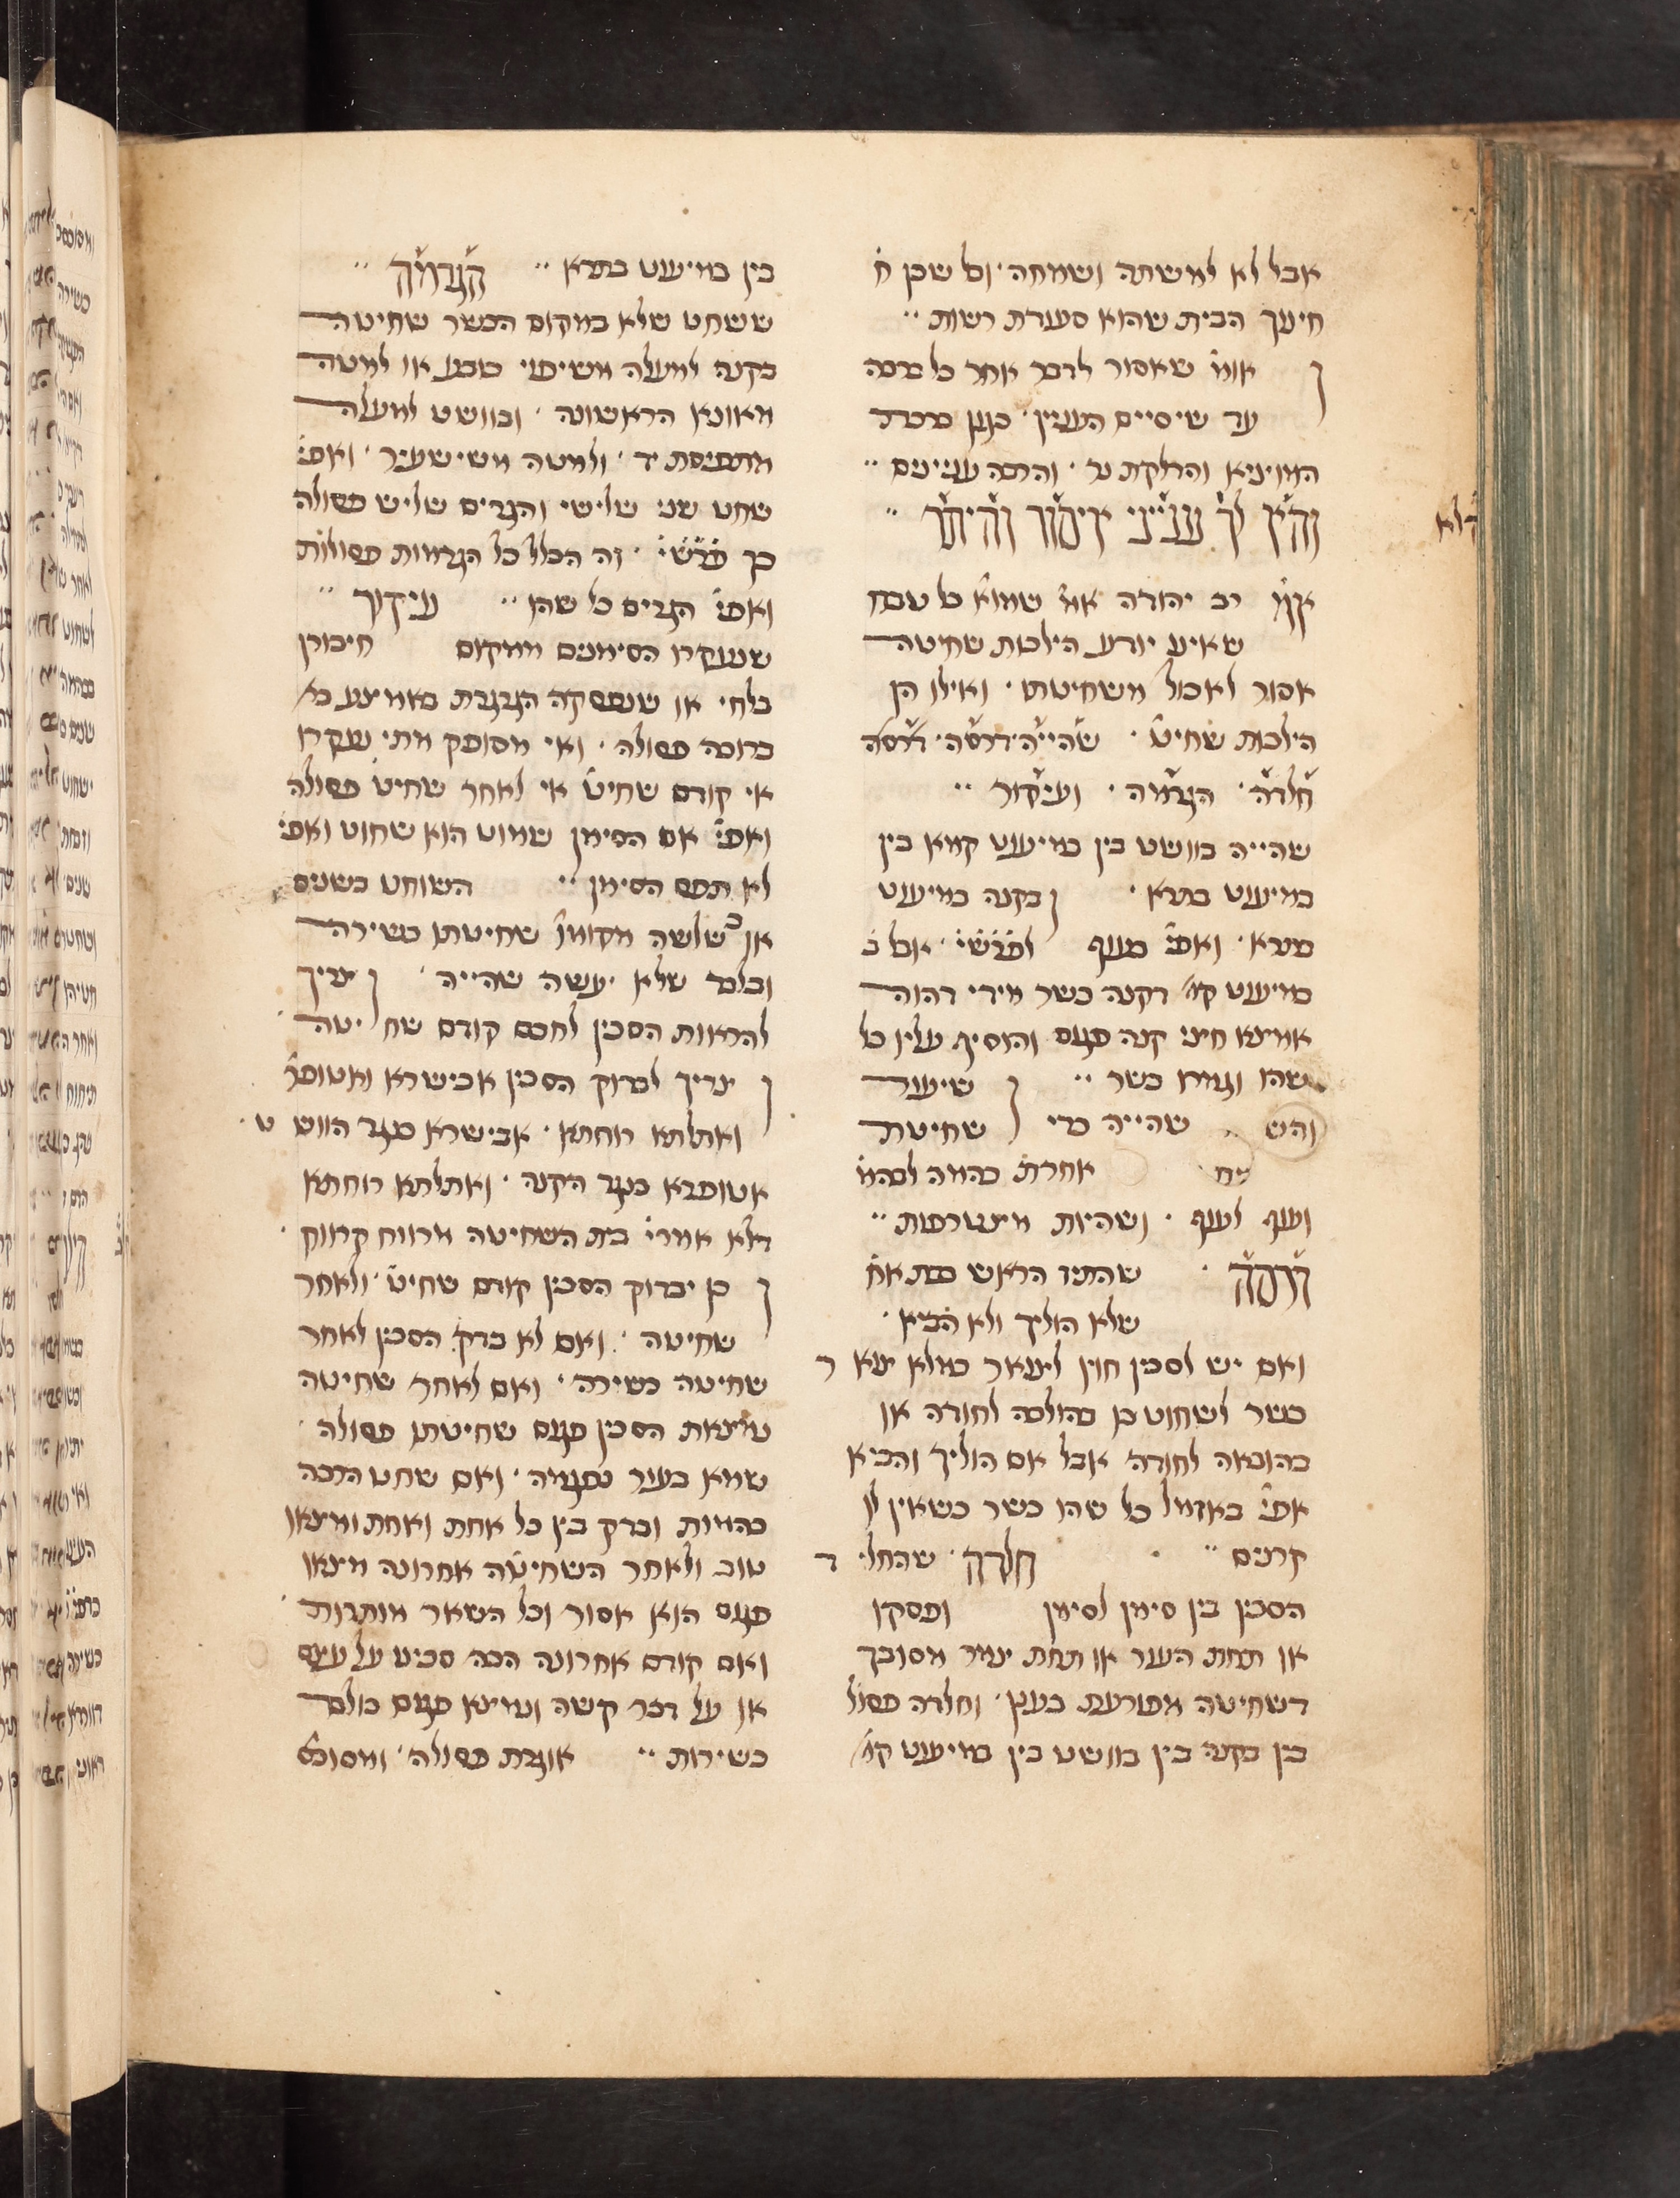 אבל לא למשתה ושמחה · וכל שכן ח׳
חינוך הבית שהוא סעודת רשות ··
אומ׳ שאסור לדבר אחר כל ברכה
עד שיסיים הענין · כגון ברכת
המוציא והדלקת נר · והרבה עניינים ··
והא לך ענייני איסור והיתר ··
קלא
אמ׳ רב יהודה אמ׳ שמוא׳ כל טבח
שאינו יודע הילכות שחיטה
אסור לאכול משחיטתו · ואילו הן
הילכות שחיט׳ · שהייה · דרסה · דרסה
חלדה · הגרמה · ועיקור ··
שהייה בוושט בין במיעוט קמא בין
במיעוט בתרא · ובקנה במיעוט
בתרא · ואפי׳ בעוף לפרש״י · אבל ב׳
במיעוט קמ׳ דקנה כשר מידי דהוה
אמוצא חצי קנה פגום והוסיף עליו כל
שהו וגמרו כשר ·· ושיעור
שהייה כדי שחיטת
אחרת בהמה לבהמ׳
ועוף לעוף · ושהיות מצטרפות ··
דרסה · שהתיז הראש בבת אח׳
שלא הוליך ולא הביא ·
ואם יש לסכין חוץ לצואר כמלא צואר
כשר לשחוט בן בהולכה לחודה או
בהובאה לחודה · אבל אם הוליך והביא
אפי׳ באזמל כל שהו כשר כשאין לו
קרנים ·· חלדה · שהחליד
הסכין בין סימן לסימן ופסקו
או תחת העור או תחת צמר מסובך
דשחיטה מפורעת בעינן · וחלדה פסול
בין בקנה בין בוושט בין במיעוט קמ׳
בין במיעוט בתרא ·· הגרמה ··
ששחט שלא במקום הכשר שחיטה
בקנה למעלה משיפוי כובע או למטה
מאונא הראשונה · ובוושט למעלה
מתפיסת יד · ולמטה משישעיר · ואפי׳
שחט שני שלישי והגרים שליש פסולה
כך פרש״י · זה הכלל כל הגרמות פסולות
ואפי׳ הגרים כל שהו ·· עיקור ··
שנעקרו הסימנים ממקום חיבורן
בלחי או שנפסקה הגרגרת באמצע
ברובה פסולה · ואי מסופק מתי נעקרו
אי קודם שחיט׳ אי לאחר שחיט׳ פסולה
ואפי׳ אם הסימן שמוט הוא שחוט ואפי׳
לא תפש הסימן ·· השוחט בשנים
או בשלשה מקומו׳ שחיטתו כשירה
ובלבד שלא יעשה שהייה · וצריך
להראות הסכין לחכם קודם שחיטה ·
וצריך לבדוק הסכין אבישרא ואטופר׳
ואתלתא רוחתא · אבישרא כנגד הוושט ·
אטופרא כנגד הקנה · ואתלתא רוחתא
דלא אמרי׳ בית השחיטה מרווח קרווח ·
וכן יבדוק הסכין קודם שחיט׳ · ולאחר
שחיטה · ואם לא בדק הסכין לאחר
שחיטה כשירה · ואם לאחר שחיטה
נמצאת הסכין פגום שחיטתו פסולה ·
שמא בעור נפגמה · ואם שחט הרבה
בהמות ובדק בין כל אחת ואחת ומצאו
טוב ולאחר השחיטה אחרונה מצאו
פגום הוא אסור וכל השאר מותרות ·
ואם קודם אחרונה הכה סכינו על עצם
או על דבר קשה ונמצא פגום כולם
כשירות ·· אוגרת פסולה · ומסוכס׳